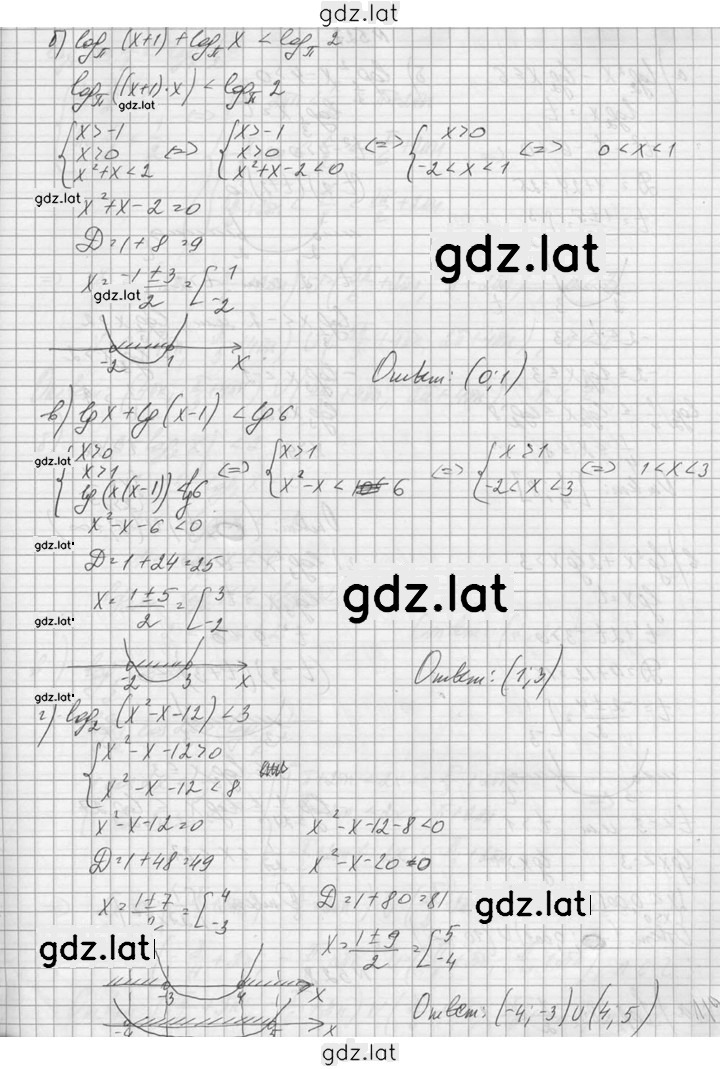 gdz.lat
б) log_π (x+1) + log_π x < log_π 2
log_π ((x+1)·x) < log_π 2
gdz.lat
{ x>-1; x>0; x²+x<2 <=> { x>-1; x>0; x²+x-2<0 <=> { x>0; -2<x<1 <=> 0<x<1
gdz.lat
x²+x-2=0
Д=1+8=9
gdz.lat
x= (-1±3)/2 = [ 1; -2
gdz.lat
-2 1 x
Ответ: (0;1)
в) lg x + lg (x-1) < lg 6
gdz.lat
{ x>0; x>1; lg (x(x-1)) < lg 6 <=> { x>1; x²-x< 6 <=> { x>1; -2<x<3 <=> 1<x<3
x²-x-6<0
gdz.lat
Д=1+24=25
gdz.lat
x= (1±5)/2 = [ 3; -2
gdz.lat
-2 3 x
Ответ: (1;3)
gdz.lat
г) log₂ (x²-x-12)<3
{ x²-x-12>0; x²-x-12<8
x²-x-12=0 x²-x-12-8<0
Д=1+48=49 x²-x-20=0
x= (1±7)/2 = [ 4; -3 Д=1+80=81
gdz.lat
x= (1±9)/2 = [ 5; -4
gdz.lat
-3 4 x
-4 5 x
Ответ: (-4;-3)∪(4;5)
gdz.lat